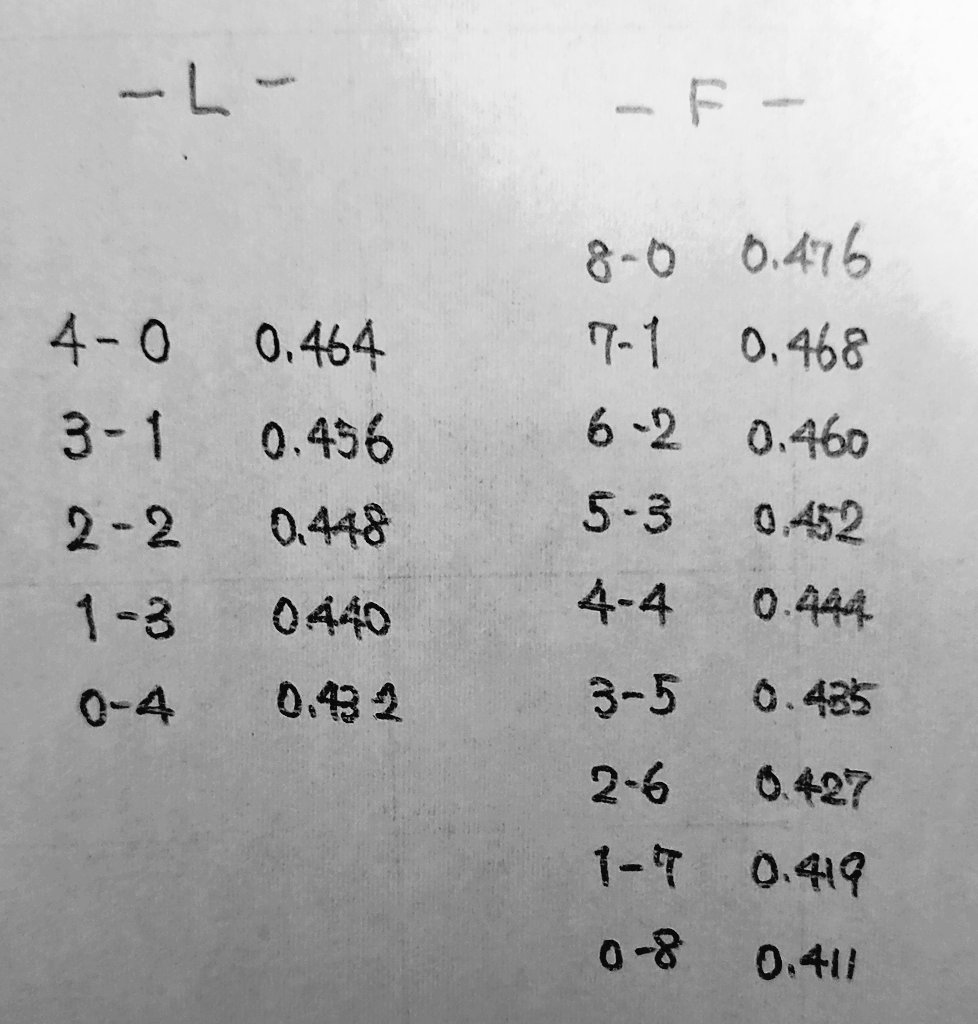 - L -
4-0 0.464
3-1 0.456
2-2 0.448
1-3 0.440
0-4 0.432
- F -
8-0 0.476
7-1 0.468
6-2 0.460
5-3 0.452
4-4 0.444
3-5 0.435
2-6 0.427
1-7 0.419
0-8 0.411